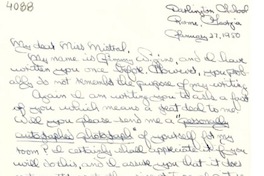 4088
Darlington School
Rome, Georgia
January 27, 1950
My dear Miss Mistral,
My name is Jimmy Wiggins, and I have
written you once before. However, you prob-
ably do not remember the purpose of my writing.
Again I am writing you to ask a favor
of you which means a great deal to me.
Will you please send me a "personally
autographed photograph" of yourself for my
room? I certainly shall appreciate it if you
will do this, and I assure you that it does